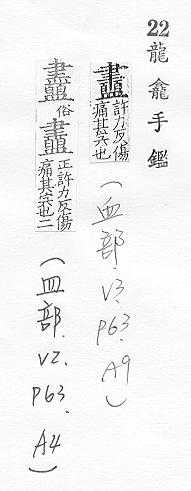 22 龍龕手鑑
許力反傷
痛也
(血部.V3.P63.A9)
俗 正許力反傷
痛也二
(血部.V2.P63.A4)